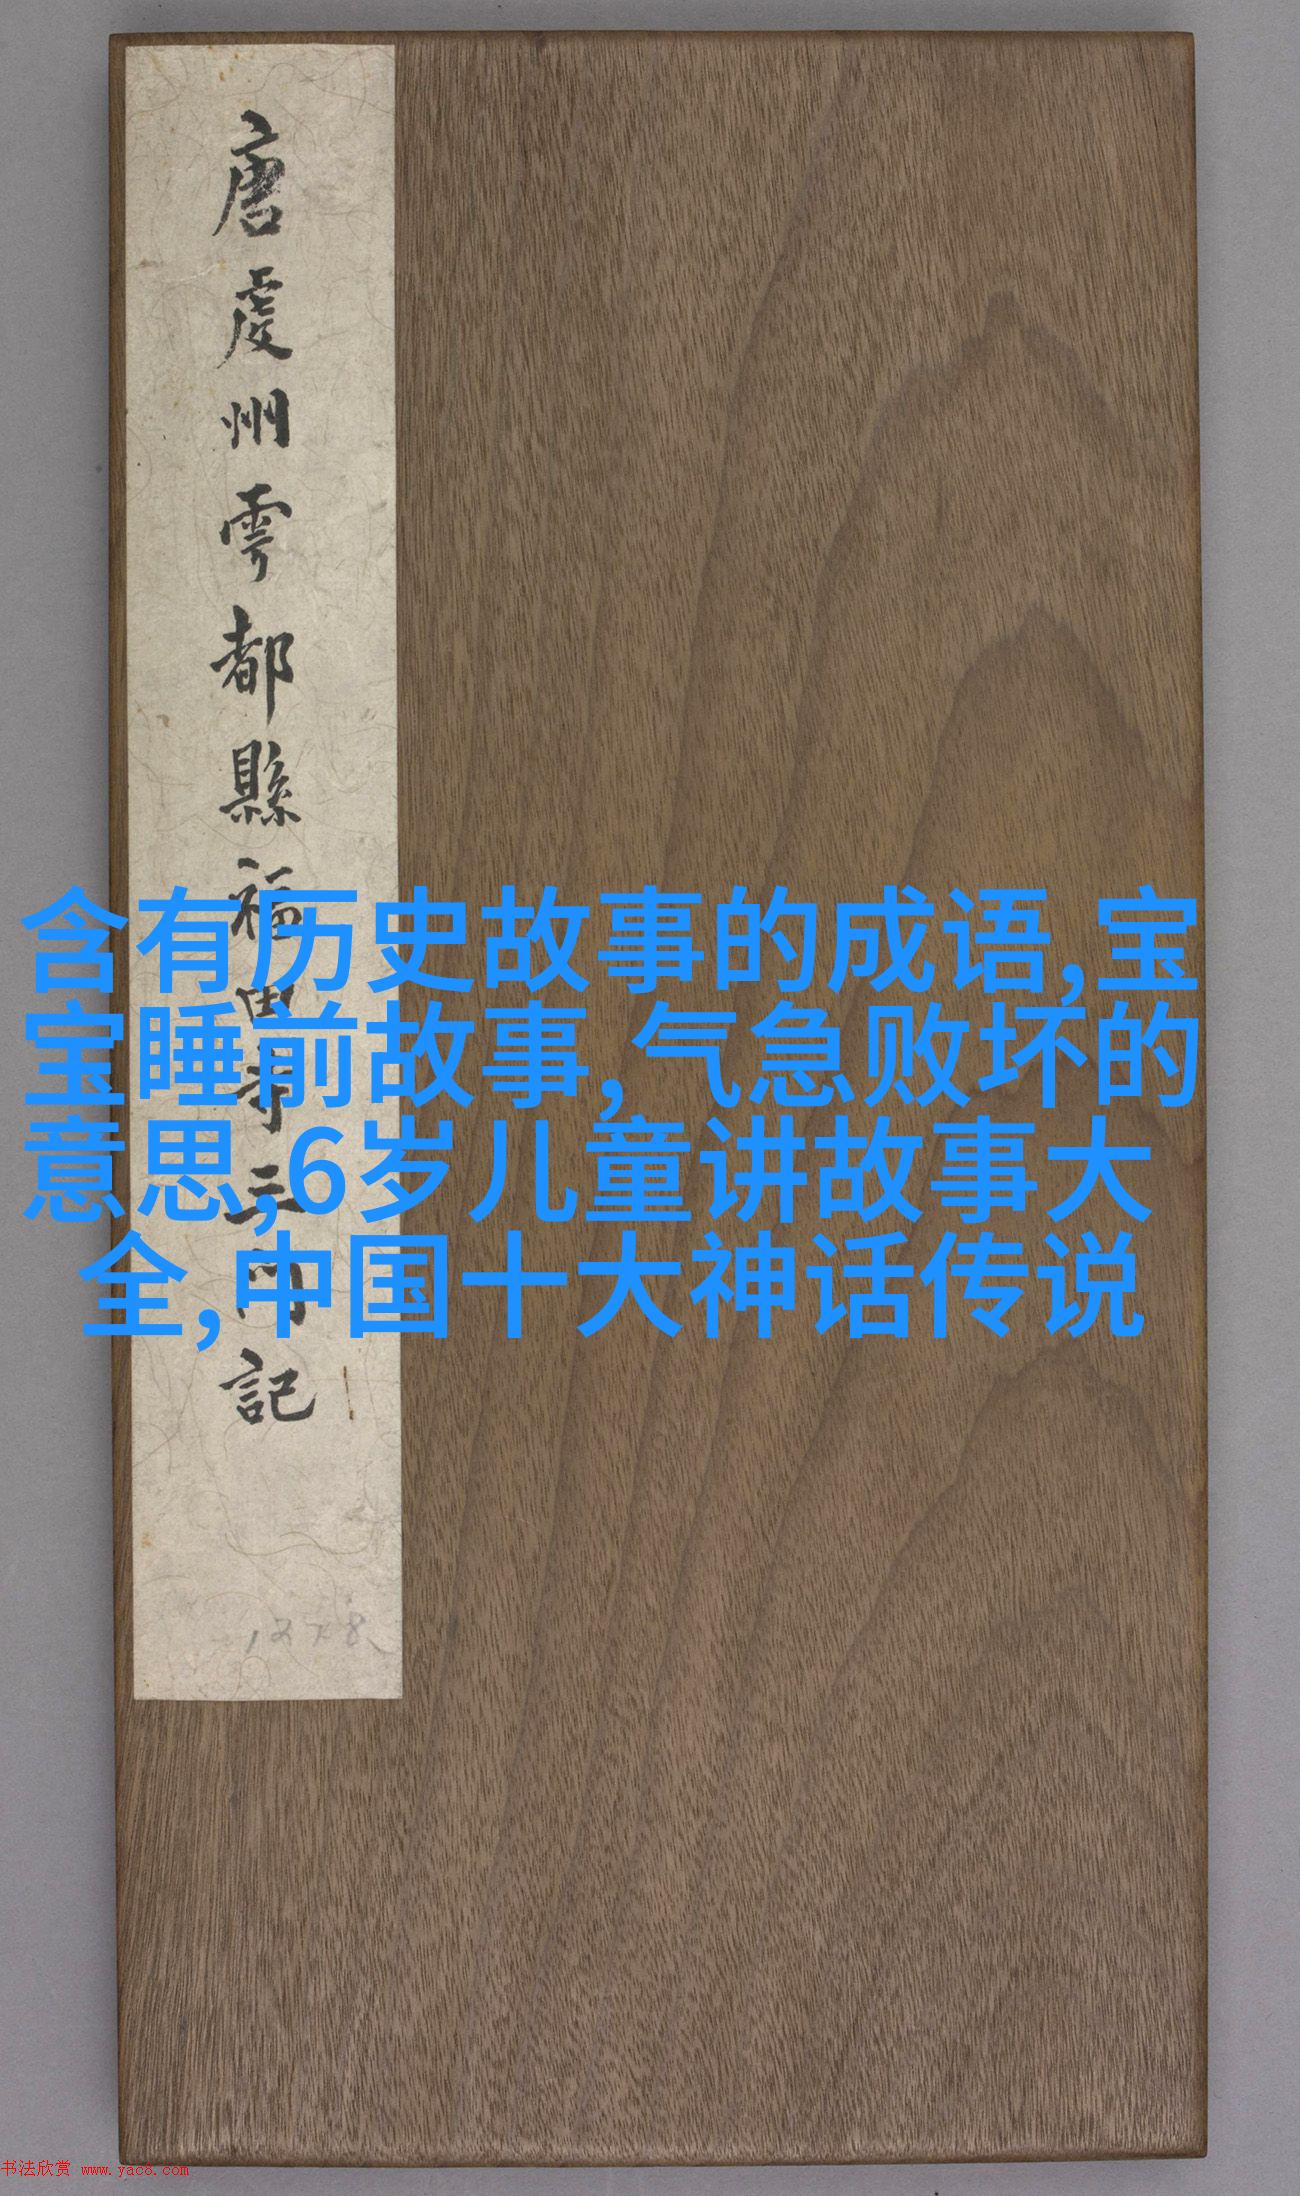 唐虔州雩都縣福田寺三門記
含有历史故事的成语,宝
宝睡前故事,气急败坏的
意思,6岁儿童讲故事大
全,中国十大神话传说
书法欣赏 www.yac8.com